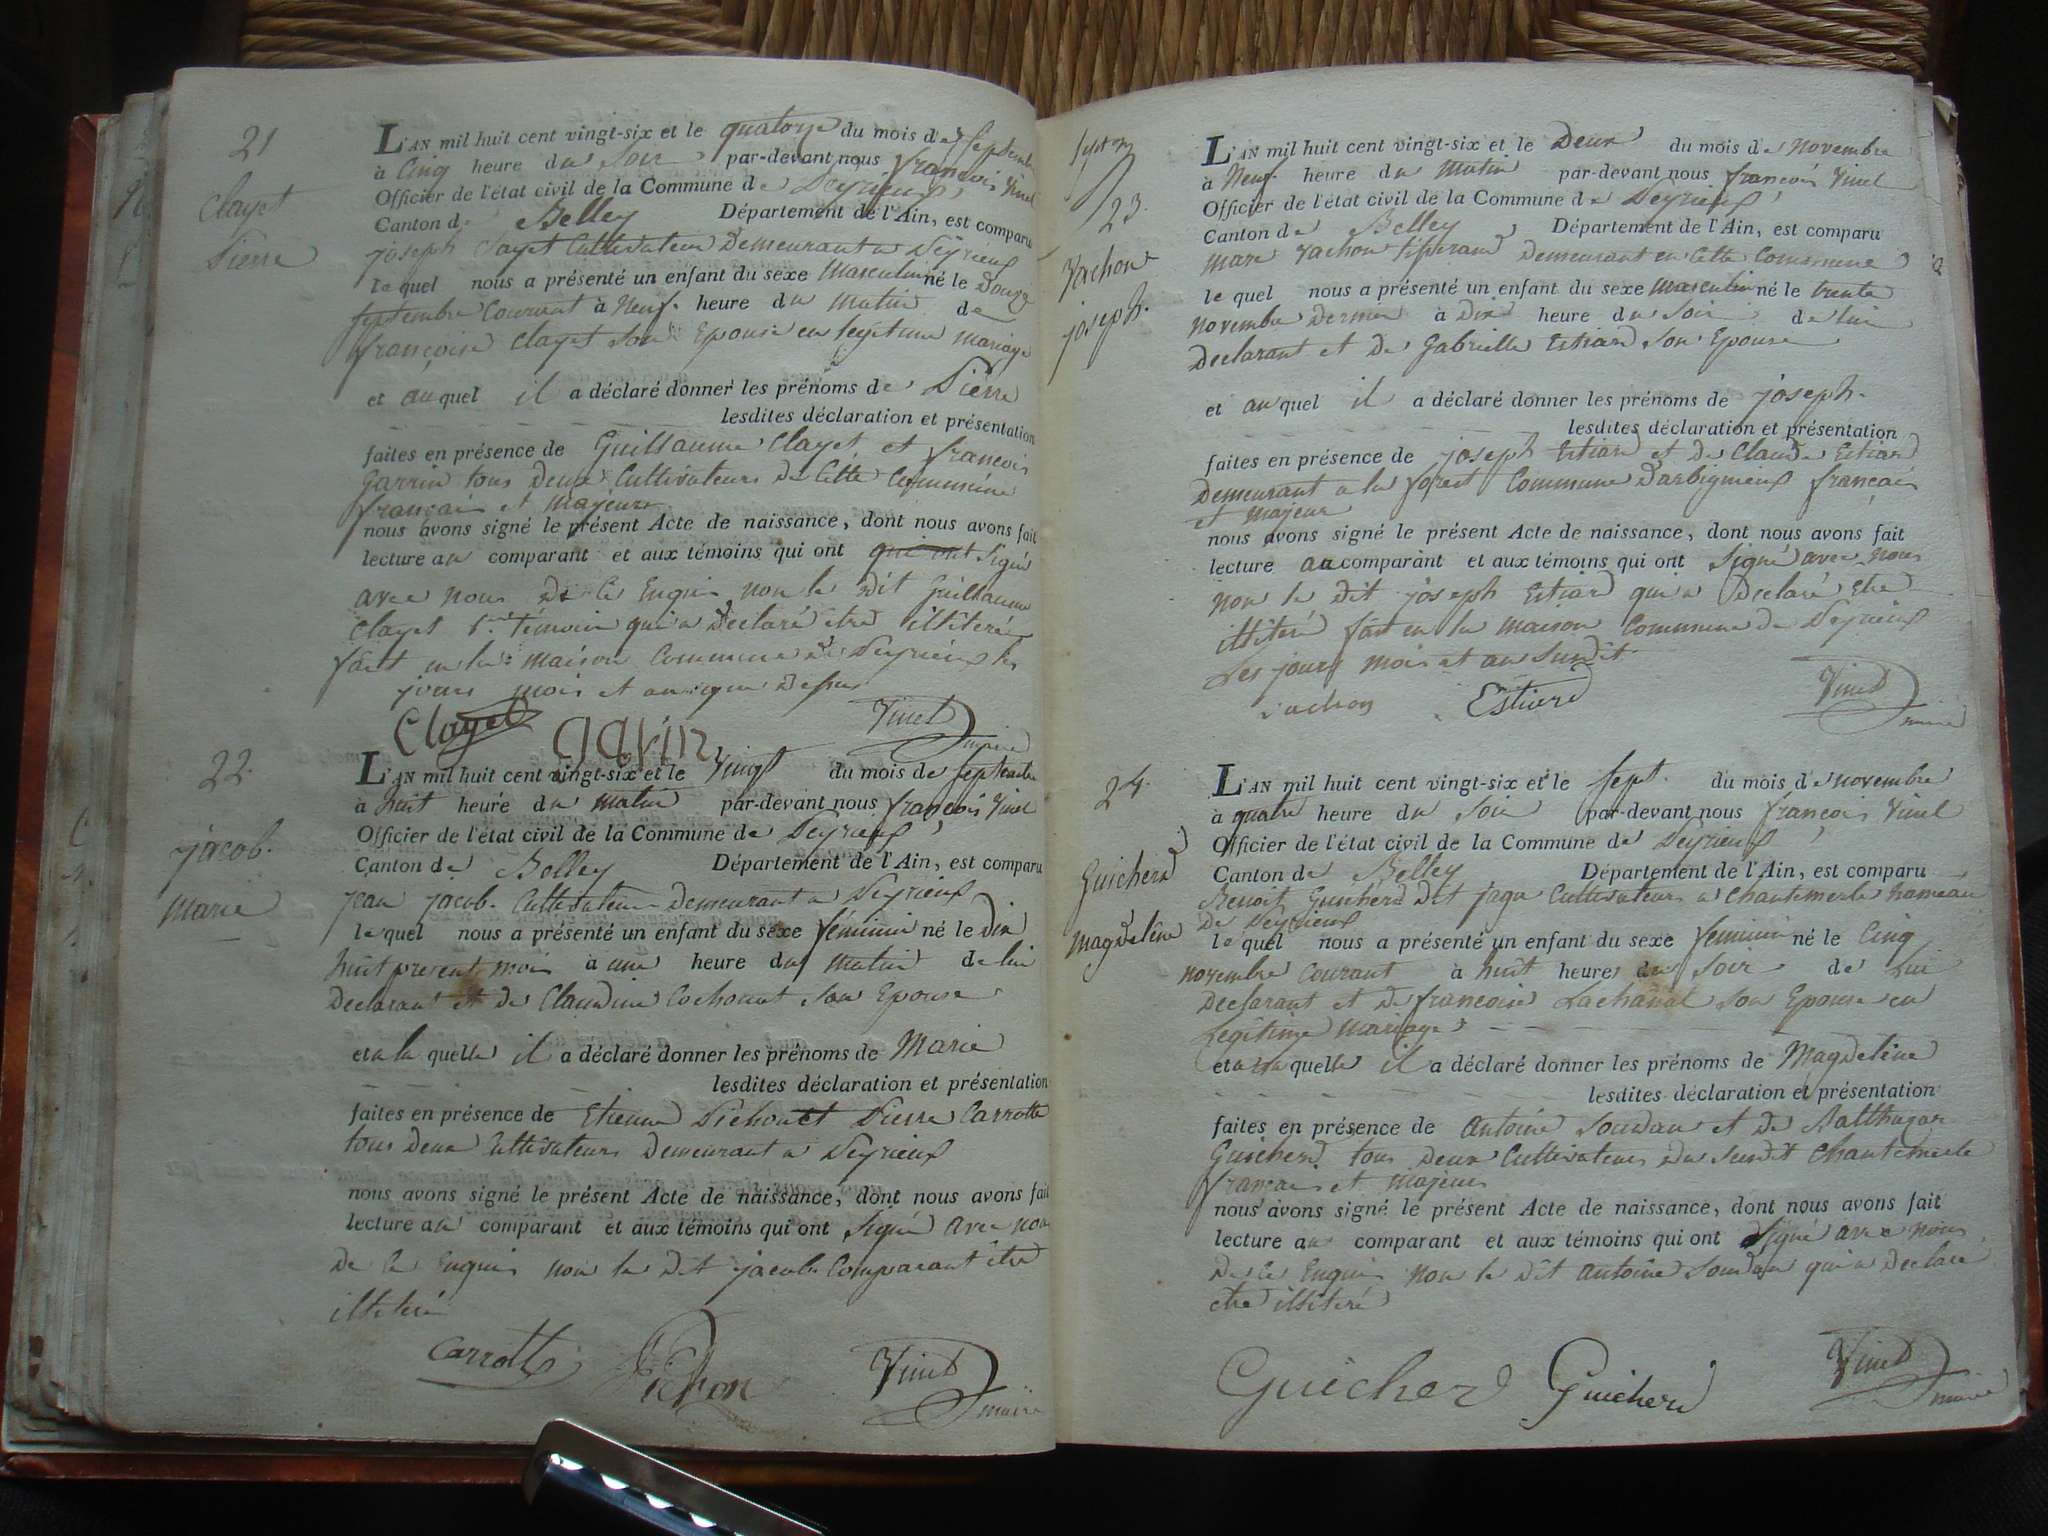 21
Clayet
Pierre
L'AN mil huit cent vingt-six et le quatorze du mois de Septembre
à Cinq heure du Soir par-devant nous françois Vinet
Officier de l'état civil de la Commune de Peyrieux
Canton de Belley Département de l'Ain, est comparu
joseph Clayet Cultivateur Demeurant a Peyrieux
le quel nous a présenté un enfant du sexe Masculin né le Douze
Septembre Courant à Neuf heure du matin de
françoise Clayet son Epouse en legitime mariage
et auquel il a déclaré donner les prénoms de Pierre
lesdites déclaration et présentation
faites en présence de Guillaume Clayet et francois
Garrin tous Deux Cultivateurs de Cette Commune
français et Majeurs
nous avons signé le présent Acte de naissance, dont nous avons fait
lecture au comparant et aux témoins qui ont qui ont Signé
avec nous De Ce Enquis non le dit Guillaume
Clayet 1er témoin qui a Declaré etre illiteré
fait en la maison Commune de Peyrieux les
jours mois et an que Dessus
Clayet Garin Vinet maire
22.
jacob.
Marie
L'AN mil huit cent vingt-six et le Vingt du mois de Septembre
à huit heure du matin par-devant nous françois Vinet
Officier de l'état civil de la Commune de Peyrieux
Canton de Belley Département de l'Ain, est comparu
Jean jacob Cultivateur Demeurant a Peyrieux
le quel nous a présenté un enfant du sexe féminin né le Dix
huit present mois à une heure du matin de lui
Declarant et de Claudine Cochonat son Epouse
et a la quelle il a déclaré donner les prénoms de Marie
lesdites déclaration et présentation
faites en présence de Etienne Pichon et Pierre Carrotte
tous Deux Cultivateurs Demeurant a Peyrieux
nous avons signé le présent Acte de naissance, dont nous avons fait
lecture au comparant et aux témoins qui ont Signé avec nous
De Ce Enquis non le Dit jacob Comparant être
illiteré
Carrotte Pichon Vinet maire
23.
Vachon
joseph.
L'AN mil huit cent vingt-six et le Deux du mois de novembre
à Neuf heure du Matin par-devant nous françois Vinet
Officier de l'état civil de la Commune de Peyrieux
Canton de Belley Département de l'Ain, est comparu
Marc Vachon tisserand Demeurant en Cette Commune
le quel nous a présenté un enfant du sexe masculin né le trente
novembre Dernier à Dix heure du Soir de lui
Declarant et De Gabrielle Estiard Son Epouse
et auquel il a déclaré donner les prénoms de joseph.
lesdites déclaration et présentation
faites en présence de joseph Estiard et de Claude Estiard
Demeurant a la forest Commune Darbignieux français
et majeur
nous avons signé le présent Acte de naissance, dont nous avons fait
lecture au comparant et aux témoins qui ont Signé avec nous
non le Dit joseph Estiard qui a Declaré Etre
illiteré fait en la maison Commune de Peyrieux
Les jours mois et an Susdit
Vachon Estiard Vinet maire
24.
Guicherd
Magdeleine
L'AN mil huit cent vingt-six et le Sept du mois de novembre
à quatre heure du Soir par-devant nous françois Vinet
Officier de l'état civil de la Commune de Peyrieux
Canton de Belley Département de l'Ain, est comparu
Benoit Guicherd Dit Cultivateur a Chantemerle hameau
De Peyrieux
le quel nous a présenté un enfant du sexe féminin né le Cinq
novembre Courant à huit heures du Soir de Lui
Declarant et de francoise Lachanal son Epouse en
Legitime Mariage
et a la quelle il a déclaré donner les prénoms de Magdeleine
lesdites déclaration et présentation
faites en présence de antoine Soudan et de Balthazar
Guicherd tous deux Cultivateurs du Susdit Chantemerle
français et majeurs
nous avons signé le présent Acte de naissance, dont nous avons fait
lecture au comparant et aux témoins qui ont Signé avec nous
De Ce Enquis non le Dit antoine Soudan qui a Declaré
etre illiteré
Guicherd Guicherd Vinet maire